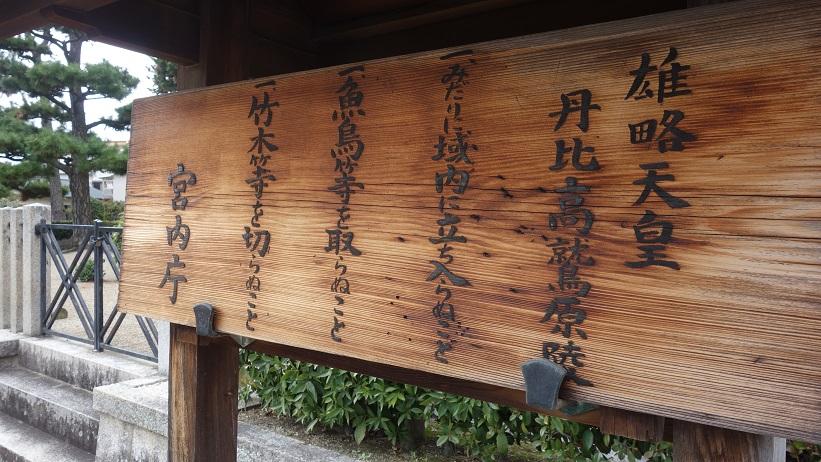 雄略天皇
丹比高鷲原陵
一、みだりに域内に立ち入らぬこと
一、魚鳥等を取らぬこと
一、竹木等を切らぬこと
宮内庁